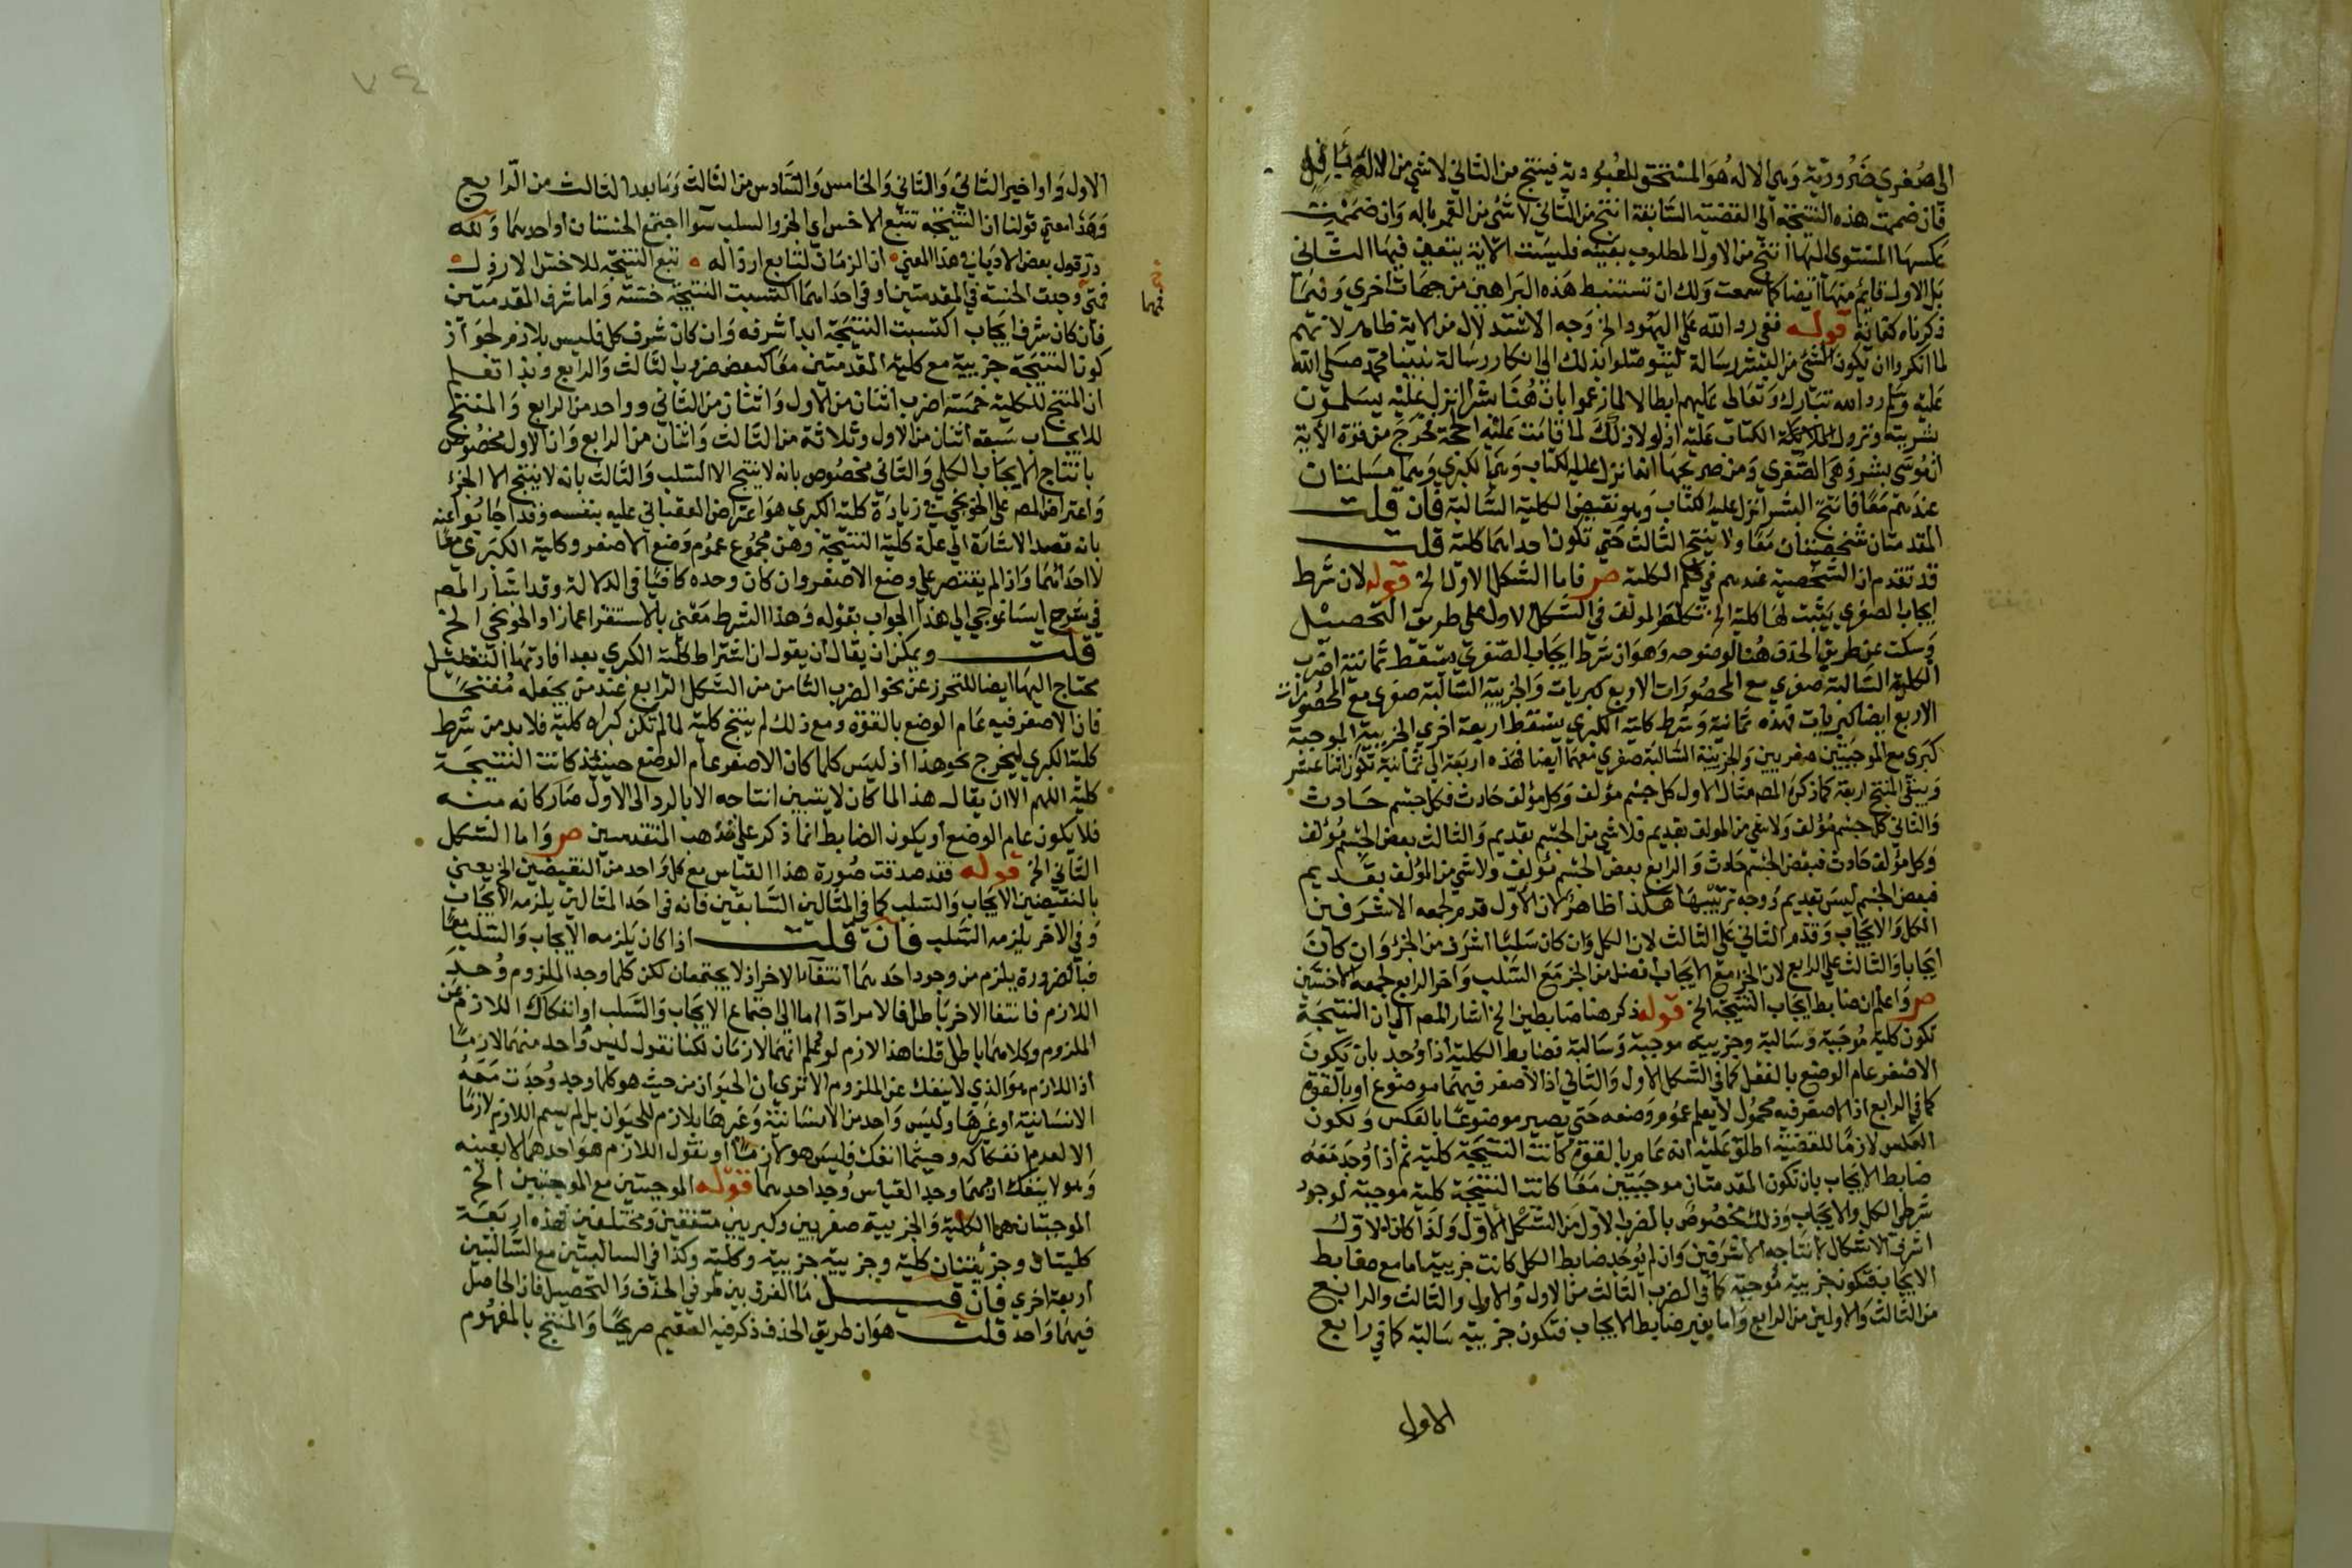 الى صغرى ضرورية وهي الاله هو المستحق للعبودية فينتج من الثاني لاشي من الاله بافل
فان ضممت هذه النتيجة الى القضية السابقة انتج من الثاني لا شئ من القمر باله وان ضممت
عكسها المستوى اليها انتج من الاول المطلوب بعينه فليست الاية يتعين فيها الثاني
بل الاول قايم منها ايضا كما سمعت ولك ان تستنبط هذه البراهين من جهات اخرى وفيما
ذكرناه كفاية قوله ففي رد الله على اليهود الخ وجه الاستدلال من الاية ظاهر لانهم
لما انكروا ان يكون لشئ من البشر رسالة ليتوصلوا بذلك الى انكار رسالة نبينا محمد صلى الله
عليه وسلم رد الله تبارك وتعالى عليهم ابطالا لما زعموا بان هنا بشرا نزل عليه يسلمون
بشريته ونزول الملائكة الكتاب عليه اذ لولا ذلك لما قامت عليه الحجة مخرج من قوة الاية
ان موسى بشر وهي الصغرى ومن صريحها انما نزل عليه الكتاب وهي الكبرى وهما مسلمتان
عندهم معا فانتج البشر انزل عليه الكتاب وهو نقيض الكلية السالبة فان قلت
المقدمتان شخصيتان معا ولا ينتج الثالث حتى تكون احداهما كلية قلت
قد تقدم ان الشخصية عندهم في حكم الكلية ص فاما الشكل الاول الخ قوله لان شرط
ايجاب الصغرى يثبت لها كلية الخ تكلم المولف في الشكل الاول على طريق التحصيل
وسكت عن طريق الحذف هنا لوضوحه وهو ان شرط ايجاب الصغرى يسقط ثمانية اضرب
الكلية السالبة صغرى مع المحصورات الاربع كبريات والجزيية السالبة صغرى مع المحصورات
الاربع ايضا كبريات فهذه ثمانية وشرط كلية الكبرى يسقط اربعة اخرى الجزيية الموجبة
كبرى مع الموجبتين صغريين والجزيية السالبة صغرى معهما ايضا فهذه اربعة الى ثمانية تكون اثنا عشر
ويبقى المنتج اربعة كما ذكره المص مثال الاول كل جسم مؤلف وكل مؤلف حادث فكل جسم حادث
والثاني كل جسم مؤلف ولا شي من المولف بقديم فلا شي من الجسم بقديم والثالث بعض الجسم مؤلف
وكل مؤلف حادث فبعض الجسم حادث والرابع بعض الجسم مؤلف ولا شي من المؤلف بقديم
فبعض الجسم ليس بقديم ووجه ترتيبها هكذا ظاهر لان الاول قدم لجمعه الاشرفين
الكل والايجاب وقدم الثاني على الثالث لان الكل وان كان سلبا اشرف من الجزؤ وان كان
ايجابا والثالث على الرابع لان الجزء مع الايجاب افضل من الجزء مع السلب واخر الرابع لجمعه الاخسين
ص واعلم ان ضابط ايجاب النتيجة الخ قوله ذكر هنا ضابطين الخ اشار المص الى ان النتيجة
تكون كلية موجبة وسالبة وجزيية موجبة وسالبة فضابط الكلية اذا وجد بان يكون
الاصغر عام الوضع بالفعل كما في الشكل الاول والثاني اذ الاصغر فيهما موضوع او بالقوة
كما في الرابع اذ الاصغر فيه محمول لا يعلم عموم وضعه حتى يصير موضوعا بالعكس ولكون
العكس لازما للقضية اطلق عليه انه عام بالقوة كانت النتيجة كلية ثم اذا وجد معه
ضابط الايجاب بان تكون المقدمتان موجبتين معا كانت النتيجة كلية موجبة لوجود
شرطي الكل والايجاب وذلك مخصوص بالضرب الاول من الشكل الاول ولذا كان الاول
اشرف الاشكال لانتاجه الاشرفين وان لم يوجد ضابط الكل كانت جزيية اما مع ضابط
الايجاب فتكون جزيية موجبة كما في الضرب الثالث من الاول والاول والثالث والرابع
من الثالث والاولين من الرابع واما بغير ضابط الايجاب فتكون جزيية سالبة كما في رابع
الاول
٧٤
الاول واواخير الثاني والثاني والخامس والسادس من الثالث وما بعد الثالث من الرابع
وهذا معنى قولنا ان النتيجة تتبع الاخس اي الجزء والسلب سوا اجتمع الخستان او احديهما ولله
در قول بعض الادبا في هذا المعنى ان الزمان لتابع ارذاله تبع النتيجة للاخس الارذل
فمتى وجدت الخسة في المقدمتين او في احداهما اكتسبت النتيجة خسته واما شرف المقدمتين
فان كان شرف ايجاب اكتسبت النتيجة ابدا شرفه وان كان شرف كل فليس بلازم لجواز
كون النتيجة جزيية مع كلية المقدمتين معا كبعض ضروب الثالث والرابع وبذا تعلم
ان المنتج للكلية خمسة اضرب اثنان من الاول واثنان من الثاني وواحد من الرابع والمنتج
للايجاب سبعة اثنان من الاول وثلاثة من الثالث واثنان من الرابع وان الاول مخصوص
بانتاج الايجاب الكلي والثاني مخصوص بانه لا ينتج الا السلب والثالث بانه لا ينتج الا الجزء
واعتراض المص على الخونجي في زيادة كلية الكبرى هو اعتراض العقباني عليه بنفسه وقد اجابوا عنه
بانه قصد الاشارة الى علة كلية النتيجة وهن مجموع عموم وضع الاصغر وكلية الكبرى معا
لا احداهما واذ لم يقتصر على وضع الاصغر وان كان وحده كافيا في الدلالة وقد اشار المص
في شرح ايساغوجي الى هذا الجواب بقوله وهذا الشرط مغني بالاستقراء عما زاد الخونجي الخ
قلت ويمكن ان يقال ان يقول ان اشتراط كلية الكبرى بعد افادتها التفطن
محتاج اليها ايضا للتحرز عن نحو الضرب الثامن من الشكل الرابع عند من يجعله منتجا
فان الاصغر فيه عام الوضع بالقوة ومع ذلك لم ينتج كلية لما لم تكن كبراه كلية فلا بد من شرط
كلية الكبرى ليخرج نحو هذا اذ ليس كلما كان الاصغر عام الوضع حينئذ كانت النتيجة
كلية اللهم الا ان يقال هذا لما كان لا يتبين انتاجه الا بالرد الى الاول صار كانه منه
فلا يكون عام الوضع او يكون الضابط انما ذكر على مذهب المتقدمين ص واما الشكل
الثاني الخ قوله فقد صدقت صورة هذا القياس مع كل واحد من النقيضين الخ يعني
بالنقيضين الايجاب والسلب كما في المثالين السابقين فانه في احد المثالين يلزمه الايجاب
وفي الاخر يلزمه السلب فان قلت اذا كان يلزمه الايجاب والسلب معا
فبالضرورة يلزم من وجود احدهما انتفاء الاخر اذ لا يجتمعان لكن كلما وجد الملزوم وجد
اللازم فانتفا الاخر باطل فالامر ادا اما الى اجتماع الايجاب والسلب او انفكاك اللازم عن
الملزوم وكلاهما باطل قلنا هذا لازم لو قلتم انهما لازمان لكنا نقول ليس واحد منهما لازما
اذ اللازم هو الذي لا ينفك عن الملزوم الا ترى ان الحيوان من حيث هو كلما وجد وجدت معه
الانسانية او غيرها وليس واحد من الانسانية وغيرها بلازم للحيوان بل لم يسم اللازم لازما
الا لعدم انفكاكه وحيثما انفك فليس هو لازما او نقول اللازم هو احدهما لا بعينه
وهو لا ينفك اذ مهما وجد القياس وجد احدهما قوله الموجبتين مع الموجبتين الخ
الموجبتان هما الكلية والجزيية صغريين وكبريين متفقين ومختلفين فهذه اربعة
كليتان وجزئيتان كلية وجزيية جزيية وكلية وكذا في السالبتين مع السالبتين
اربعة اخرى فان قيل ما الفرق بين طرفي الحذف والتحصيل فان الحاصل
فيهما واحد قلت هو ان طريق الحذف ذكر فيه العقيم صريحا والمنتج بالمفهوم